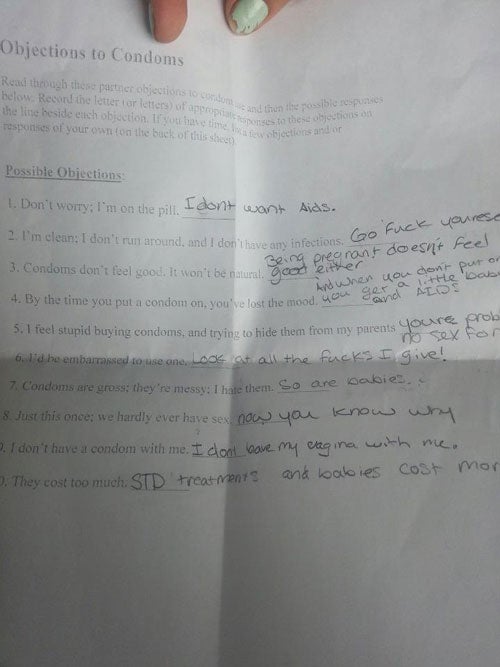 Objections to Condoms
Read through these partner objections to condom use and then the possible responses
below. Record the letter (or letters) of appropriate responses to these objections on
the line beside each objection. If you have time, a few objections and or
responses of your own (on the back of this sheet).
Possible Objections:
1. Don't worry; I'm on the pill. I dont want Aids.
2. I'm clean; I don't run around, and I don't have any infections. Go Fuck yourse
3. Condoms don't feel good. It won't be natural. Being pregnant doesn't feel
good either
4. By the time you put a condom on, you've lost the mood. And when you dont put on
you get a little bab
and AIDS
5. I feel stupid buying condoms, and trying to hide them from my parents youre prob
no sex for
6. I'd be embarrassed to use one. Look at all the fucks I give!
7. Condoms are gross; they're messy; I hate them. So are babies.
8. Just this once; we hardly ever have sex. now you know why
9. I don't have a condom with me. I dont have my vagina with me.
0. They cost too much. STD treatments and babies cost mor